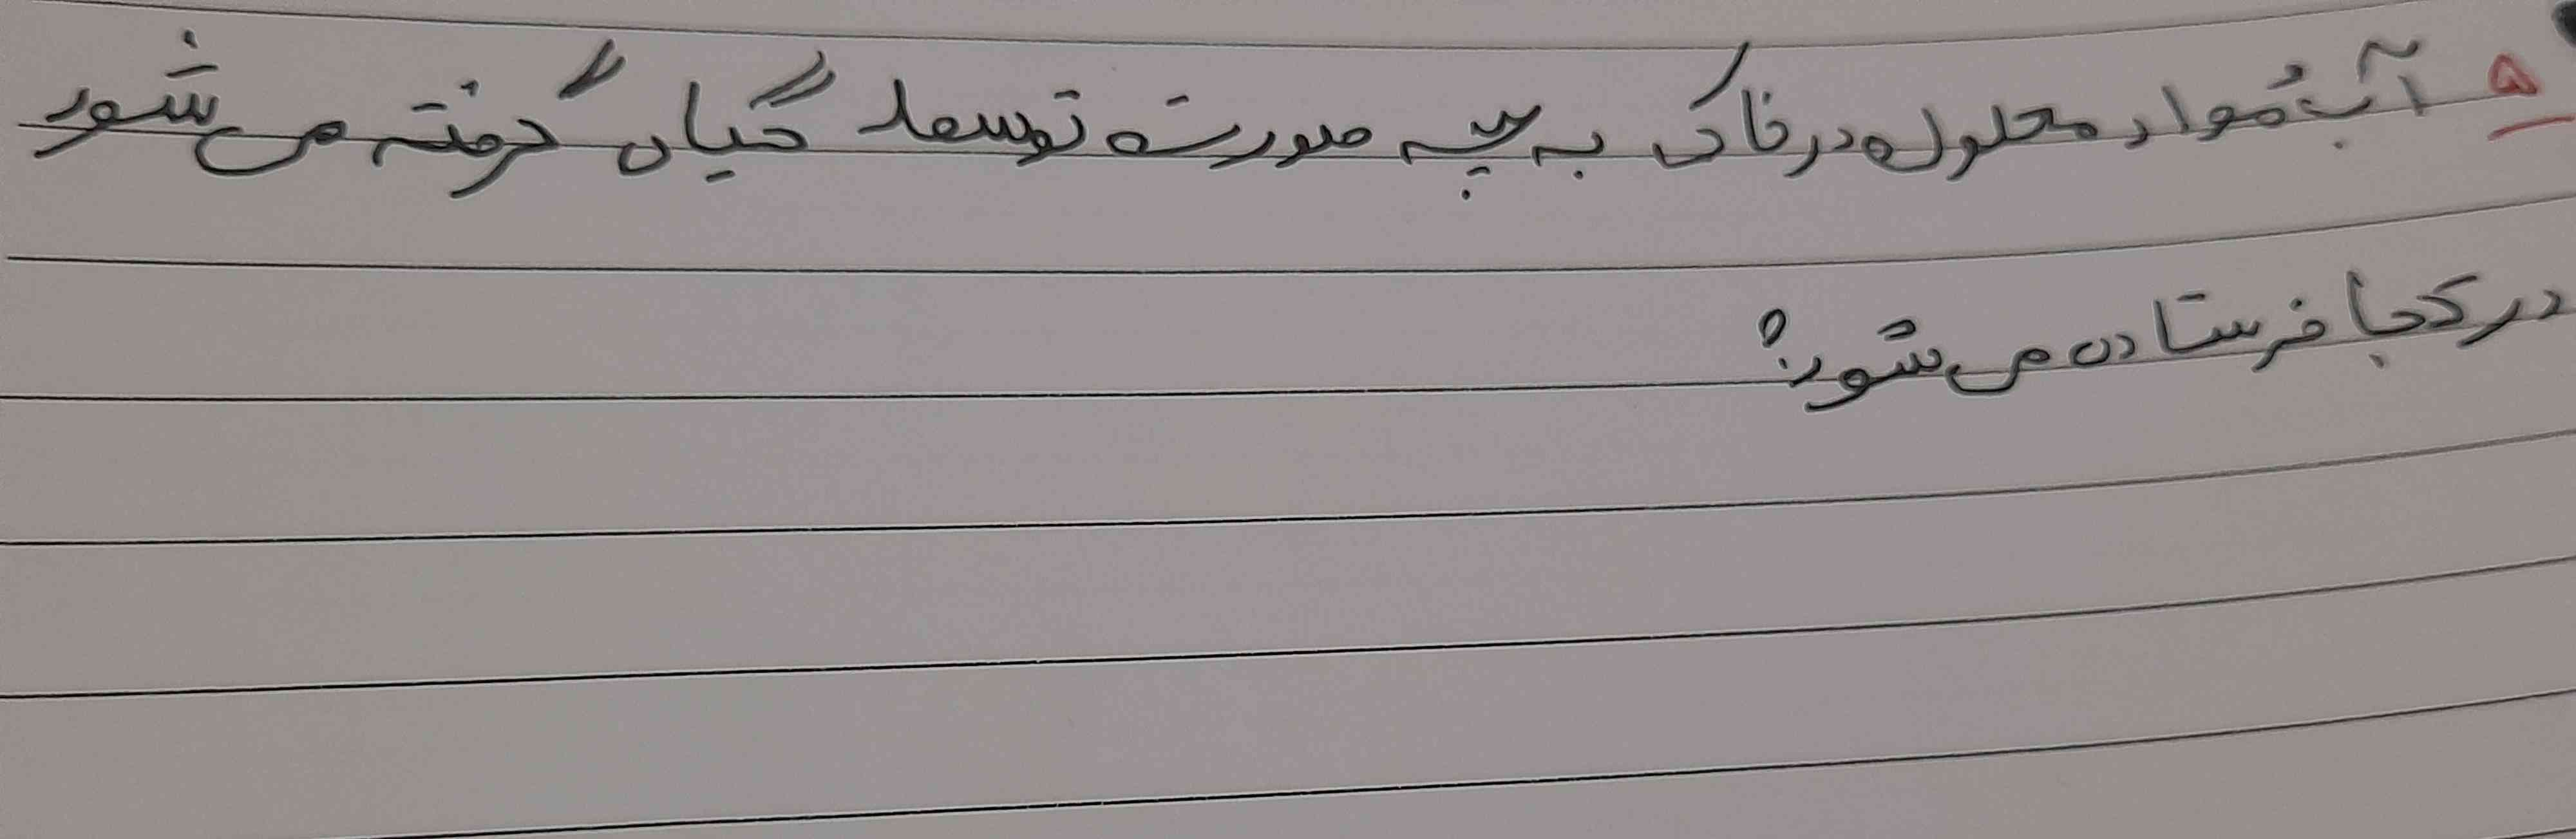 ۵ آب و مواد محلول در خاک به چه صورت توسط گیاه گرفته می شود
در کجا فرستاده می شود؟